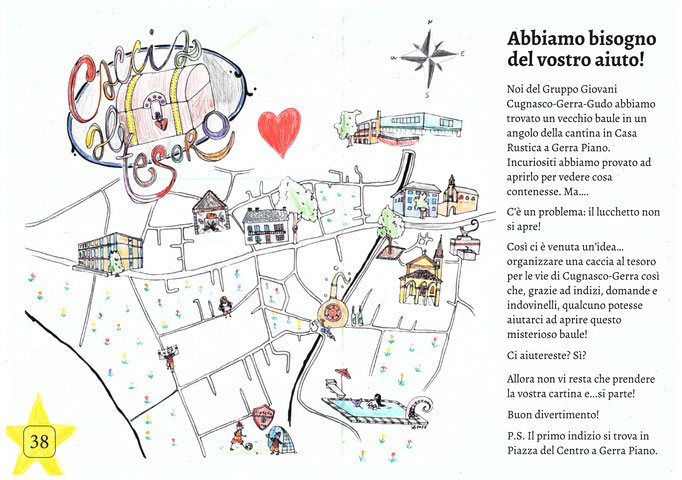 Caccia
al
tesoro
N
E
S
Abbiamo bisogno
del vostro aiuto!
Noi del Gruppo Giovani
Cugnasco-Gerra-Gudo abbiamo
trovato un vecchio baule in un
angolo della cantina in Casa
Rustica a Gerra Piano.
Incuriositi abbiamo provato ad
aprirlo per vedere cosa
contenesse. Ma....
C'è un problema: il lucchetto non
si apre!
Così ci è venuta un'idea...
organizzare una caccia al tesoro
per le vie di Cugnasco-Gerra così
che, grazie ad indizi, domande e
indovinelli, qualcuno potesse
aiutarci ad aprire questo
misterioso baule!
Ci aiutereste? Sì?
Allora non vi resta che prendere
la vostra cartina e...si parte!
Buon divertimento!
P.S. Il primo indizio si trova in
Piazza del Centro a Gerra Piano.
38